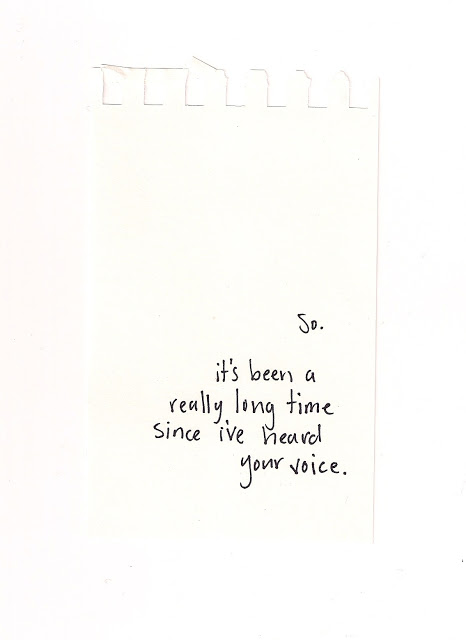 So.
it's been a
really long time
since i've heard
your voice.